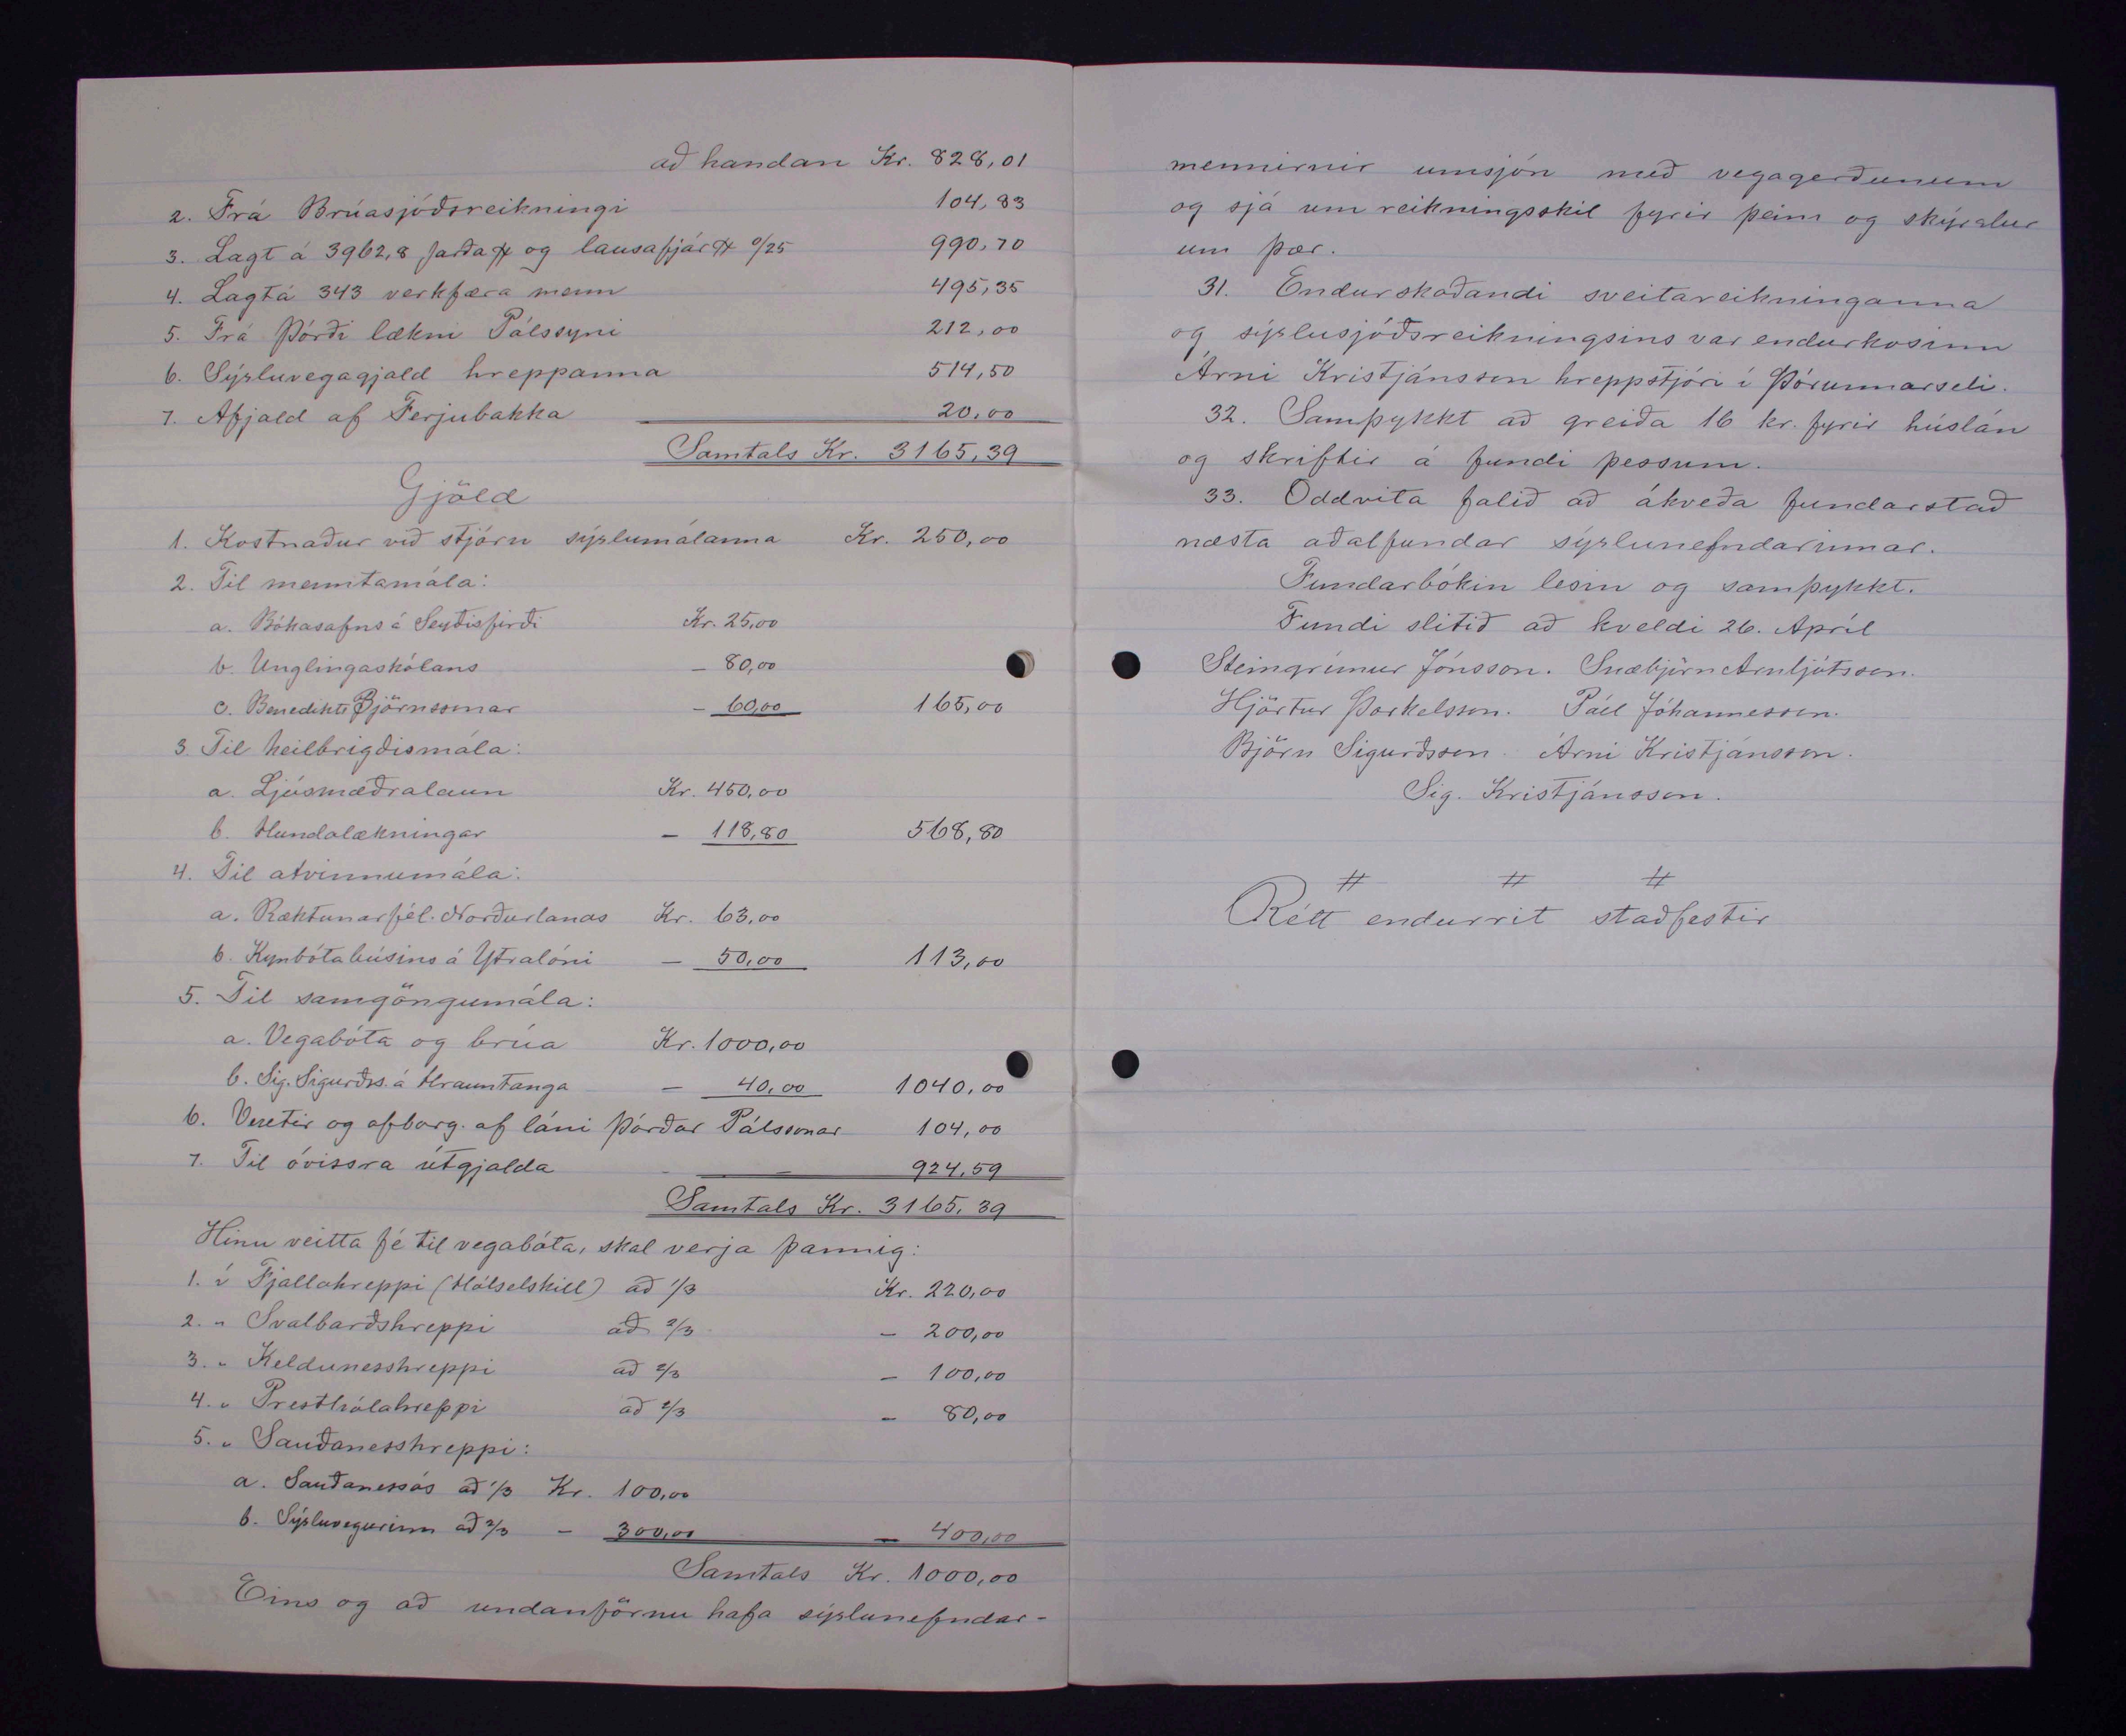 að handan Kr. 828,01
2. Frá Brúasjóðsreikningi 104,83
3. Lagt á 3962,8 jarða og lausafjár 0/25 990,70
4. Lagt á 343 verkfæra menn 495,35
5. Frá Þórði lækni Pálssyni 212,00
6. Sýsluvegagjald hreppanna 514,50
7. Afjald af Ferjubakka 20,00
Samtals Kr. 3165,39
Gjöld
1. Kostnaður við stjórn sýslumálanna Kr. 250,00
2. Til menntamála:
a. Bókasafns á Seyðisfirði Kr. 25,00
b. Unglingaskólans – 80,00
c. Benedikts Björnssonar – 60,00 165,00
3. Til heilbrigðismála:
a. Ljósmæðralaun Kr. 450,00
b. Hundalækningar – 118,80 568,80
4. Til atvinnumála:
a. Ræktunarfél. Norðurlands Kr. 63,00
b. Kynbótabúsins á Ytralóni – 50,00 113,00
5. Til samgöngumála:
a. Vegabóta og brúa Kr. 1000,00
b. Sig. Sigurðss. á Hrauntanga – 40,00 1040,00
6. Vextir og afborg. af láni Þórðar Pálssonar 104,00
7. Til óvissra útgjalda – 924,59
Samtals Kr. 3165,39
Hinu veitta fé til vegabóta, skal verja þannig:
1. í Fjallahreppi (Hólselskíll) að 1/3 Kr. 220,00
2. " Svalbarðshreppi að 2/3 – 200,00
3. " Keldunesshreppi að 2/3 – 100,00
4. " Presthólahreppi að 2/3 – 80,00
5. " Sauðanesshreppi:
a. Sauðanessós að 1/3 Kr. 100,00
b. Sýsluvegurinn að 2/3 – 300,00 – 400,00
Samtals Kr. 1000,00
Eins og að undanförnu hafa sýslunefndar-
mennirnir umsjón með vegagerðunum
og sjá um reikningsskil fyrir þeim og skýrslur
um þær.
31. Endurskoðandi sveitareikninganna
og sýslusjóðsreikningsins var endurkosinn
Árni Kristjánsson hreppstjóri í Þórunnarseli.
32. Samþykkt að greiða 16 kr. fyrir húslán
og skriftir á fundi þessum.
33. Oddvita falið að ákveða fundarstað
næsta aðalfundar sýslunefndarinnar.
Fundarbókin lesin og samþykkt.
Fundi slitið að kveldi 26. Apríl
Steingrímur Jónsson. Snæbjörn Arnljótsson.
Hjörtur Þorkelsson. Páll Jóhannesson.
Björn Sigurðsson. Árni Kristjánsson.
Sig. Kristjánsson.
# # #
Rétt endurrit staðfestir